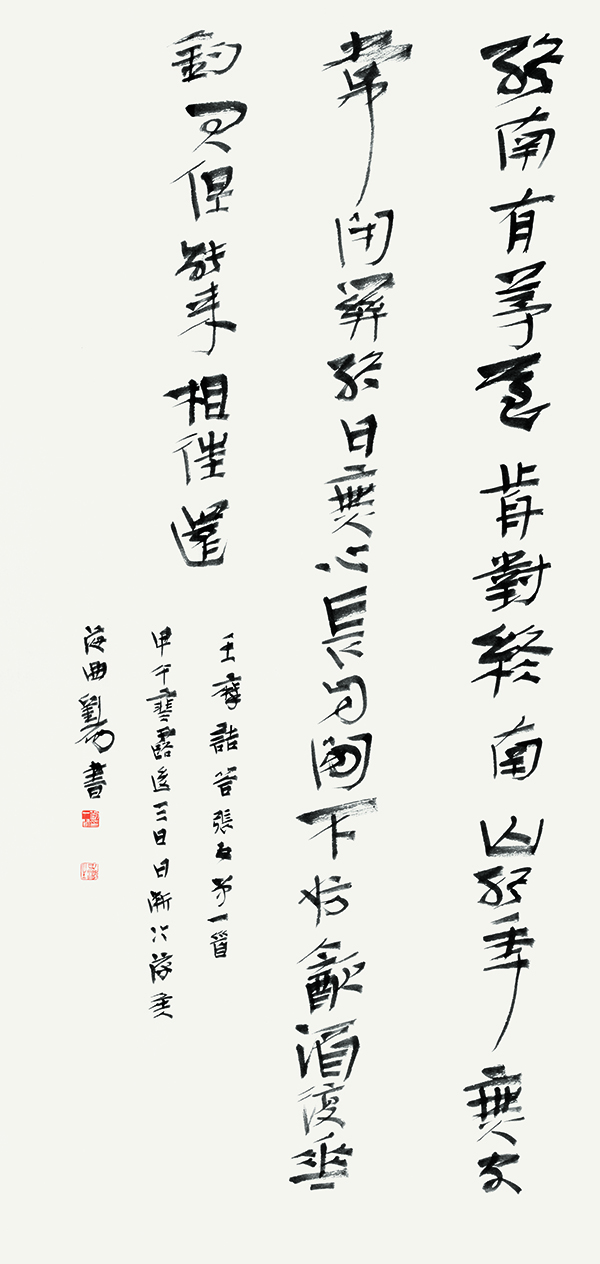 終南有茅屋前對終南山終年無客
常閉關終日無心長自閒不妨飲酒復垂
釣君但能來相往還
王摩詰答張五弟一首
甲午寒露後三日日漸
海曲劉書